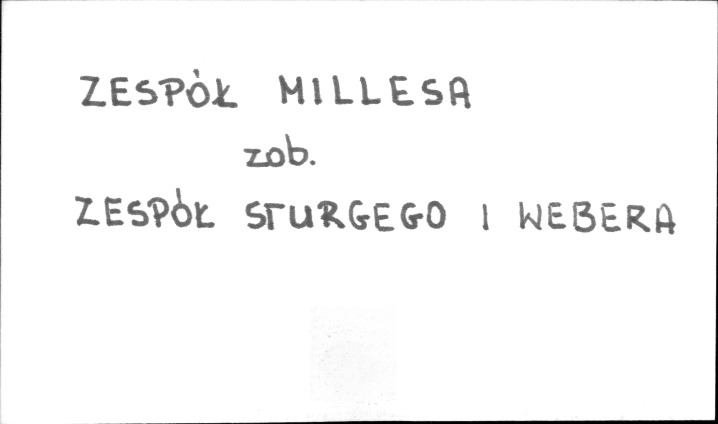 ZESPÓŁ MILLESA
zob.
ZESPÓŁ STURGEGO I WEBERA